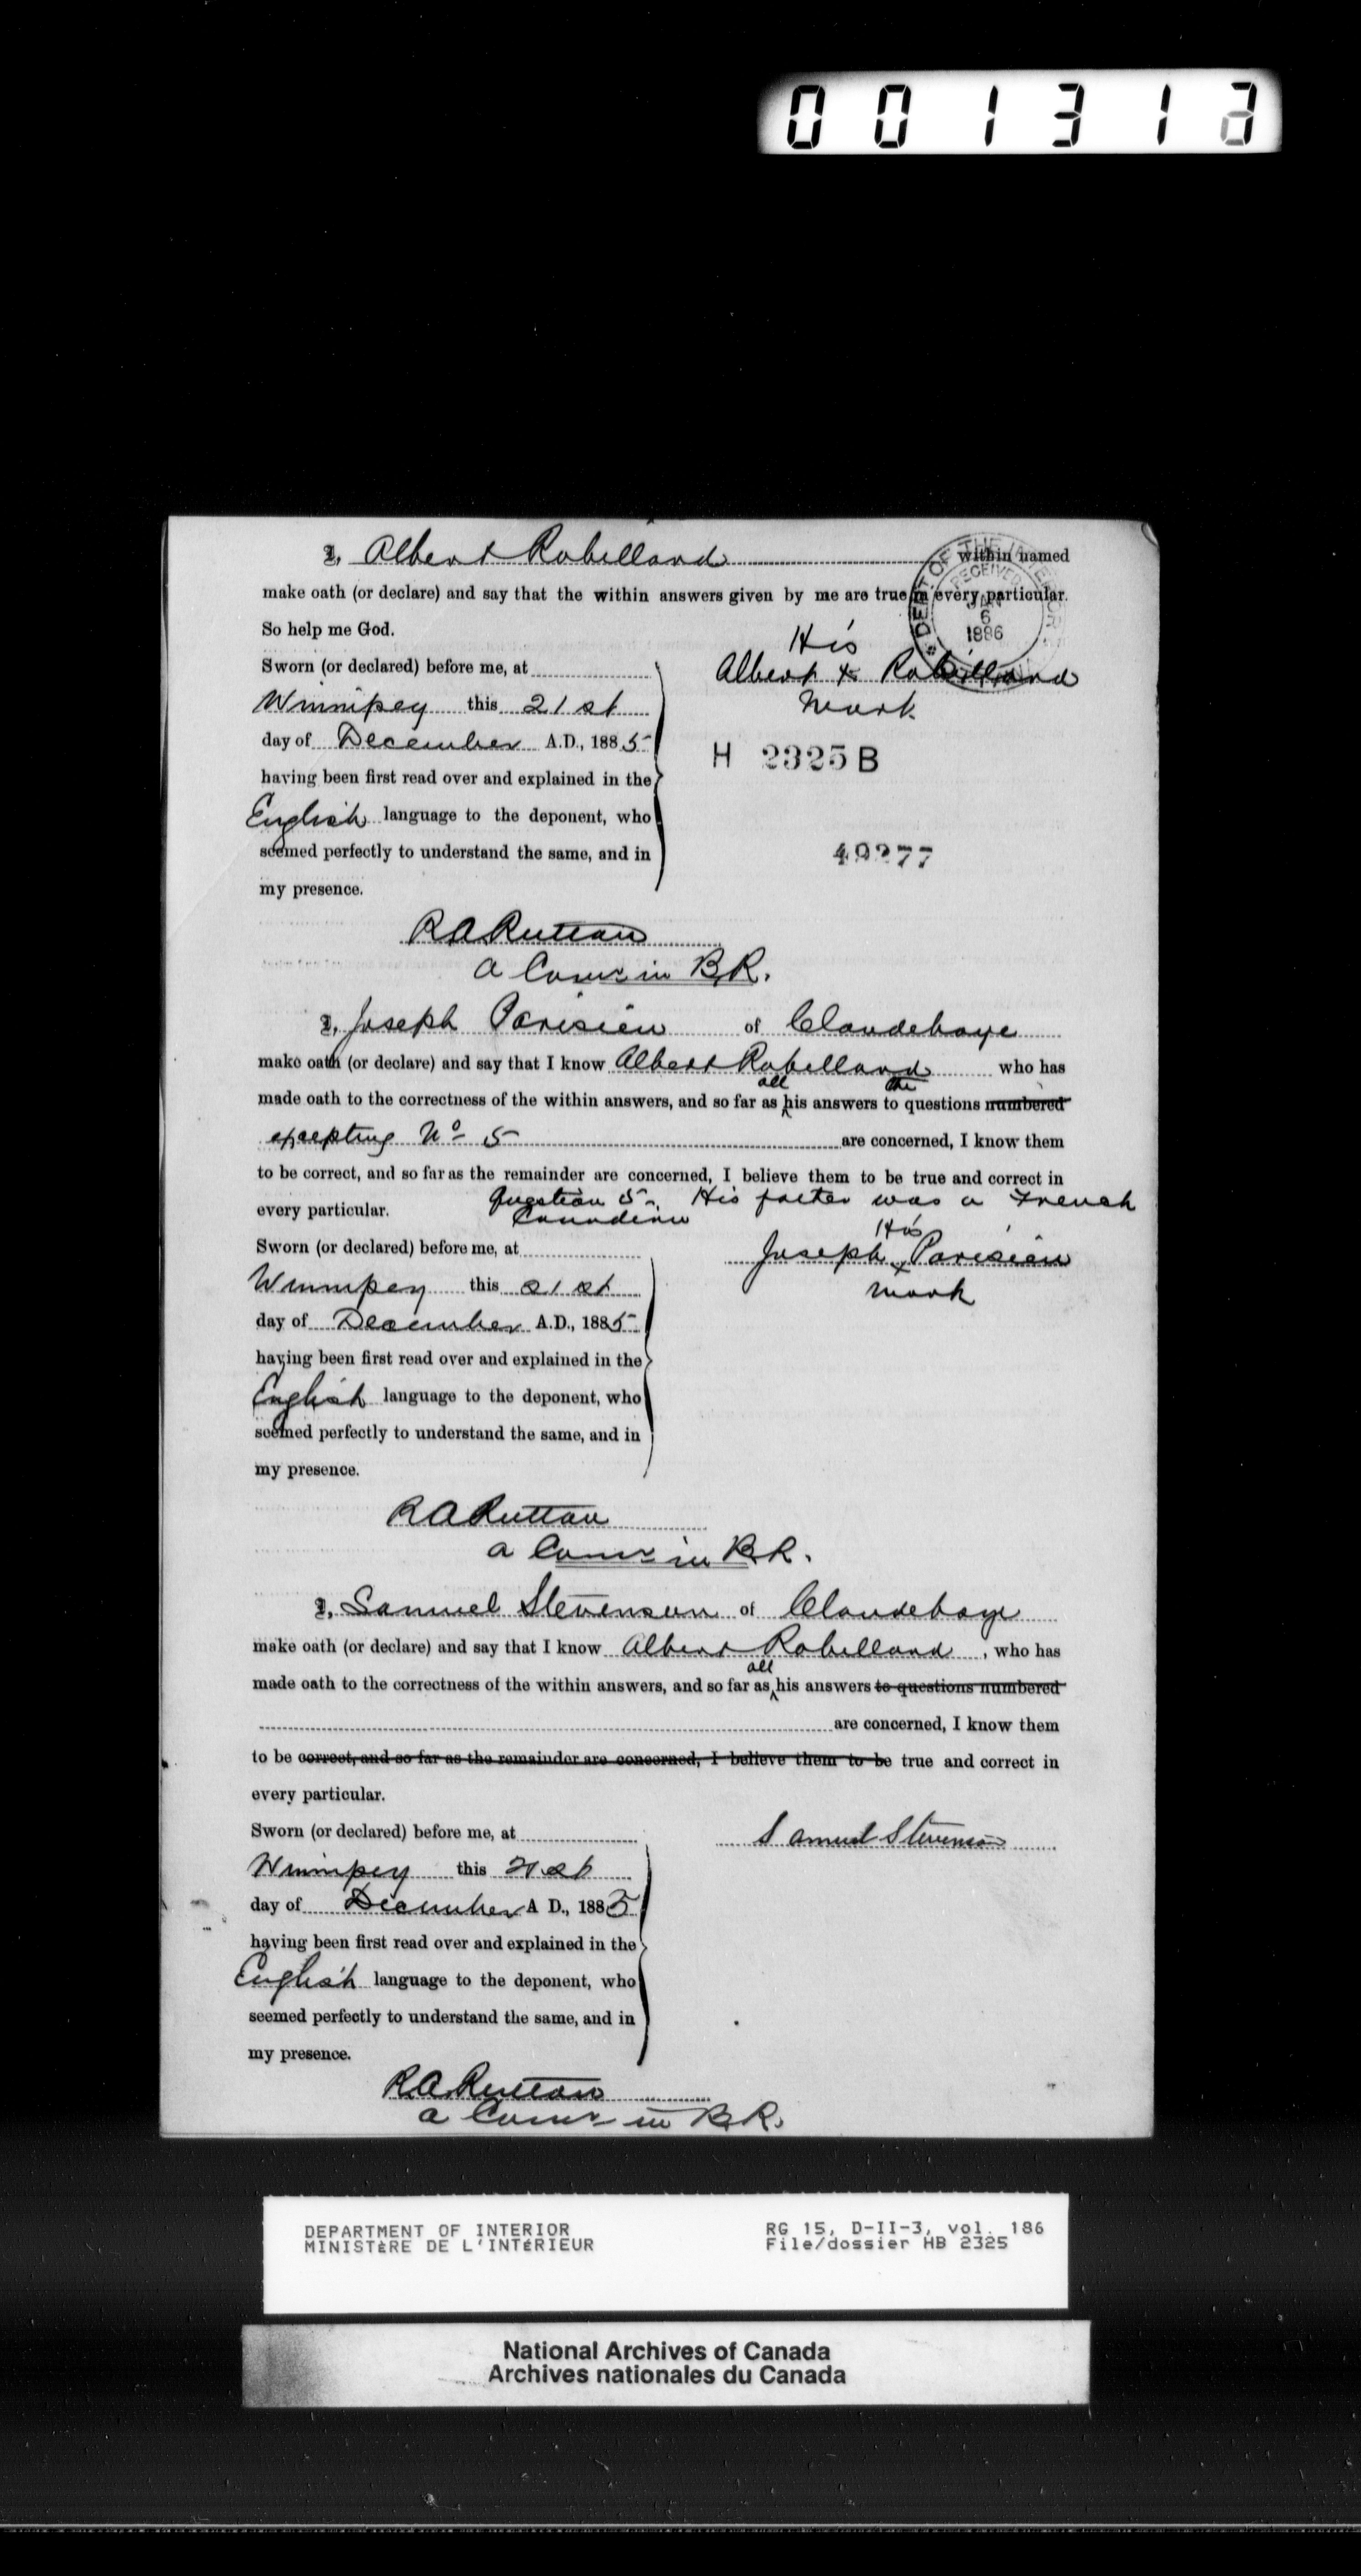 001313
I, Albert Robilland within named
make oath (or declare) and say that the within answers given by me are true in every particular.
So help me God.
DEPT OF THE INTERIOR
RECEIVED
JAN
6
1886
Sworn (or declared) before me, at
His
Albert x Robilland
mark
Winnipeg this 21st
day of December A.D., 1885
H 2325 B
having been first read over and explained in the
English language to the deponent, who
seemed perfectly to understand the same, and in
49277
my presence.
R A Ruttan
a Comr in BR.
I, Joseph Parisien of Clandeboye
make oath (or declare) and say that I know Albert Robilland who has
made oath to the correctness of the within answers, and so far as all his answers to the questions numbered
excepting No 5 are concerned, I know them
to be correct, and so far as the remainder are concerned, I believe them to be true and correct in
every particular. Question 5. His father was a French
Canadian
Sworn (or declared) before me, at
His
Joseph x Parisien
mark
Winnipeg this 21st
day of December A.D., 1885
having been first read over and explained in the
English language to the deponent, who
seemed perfectly to understand the same, and in
my presence.
R A Ruttan
a Comr in BR.
I, Samuel Stevenson of Clandeboye
make oath (or declare) and say that I know Albert Robilland, who has
made oath to the correctness of the within answers, and so far as all his answers to questions numbered
are concerned, I know them
to be correct, and so far as the remainder are concerned, I believe them to be true and correct in
every particular.
Sworn (or declared) before me, at
Samuel Stevenson
Winnipeg this 21st
day of December A D., 1885
having been first read over and explained in the
English language to the deponent, who
seemed perfectly to understand the same, and in
my presence.
R A Ruttan
a Comr in BR.
DEPARTMENT OF INTERIOR
MINISTÈRE DE L'INTÉRIEUR
RG 15, D-II-3, vol. 186
File/dossier HB 2325
National Archives of Canada
Archives nationales du Canada